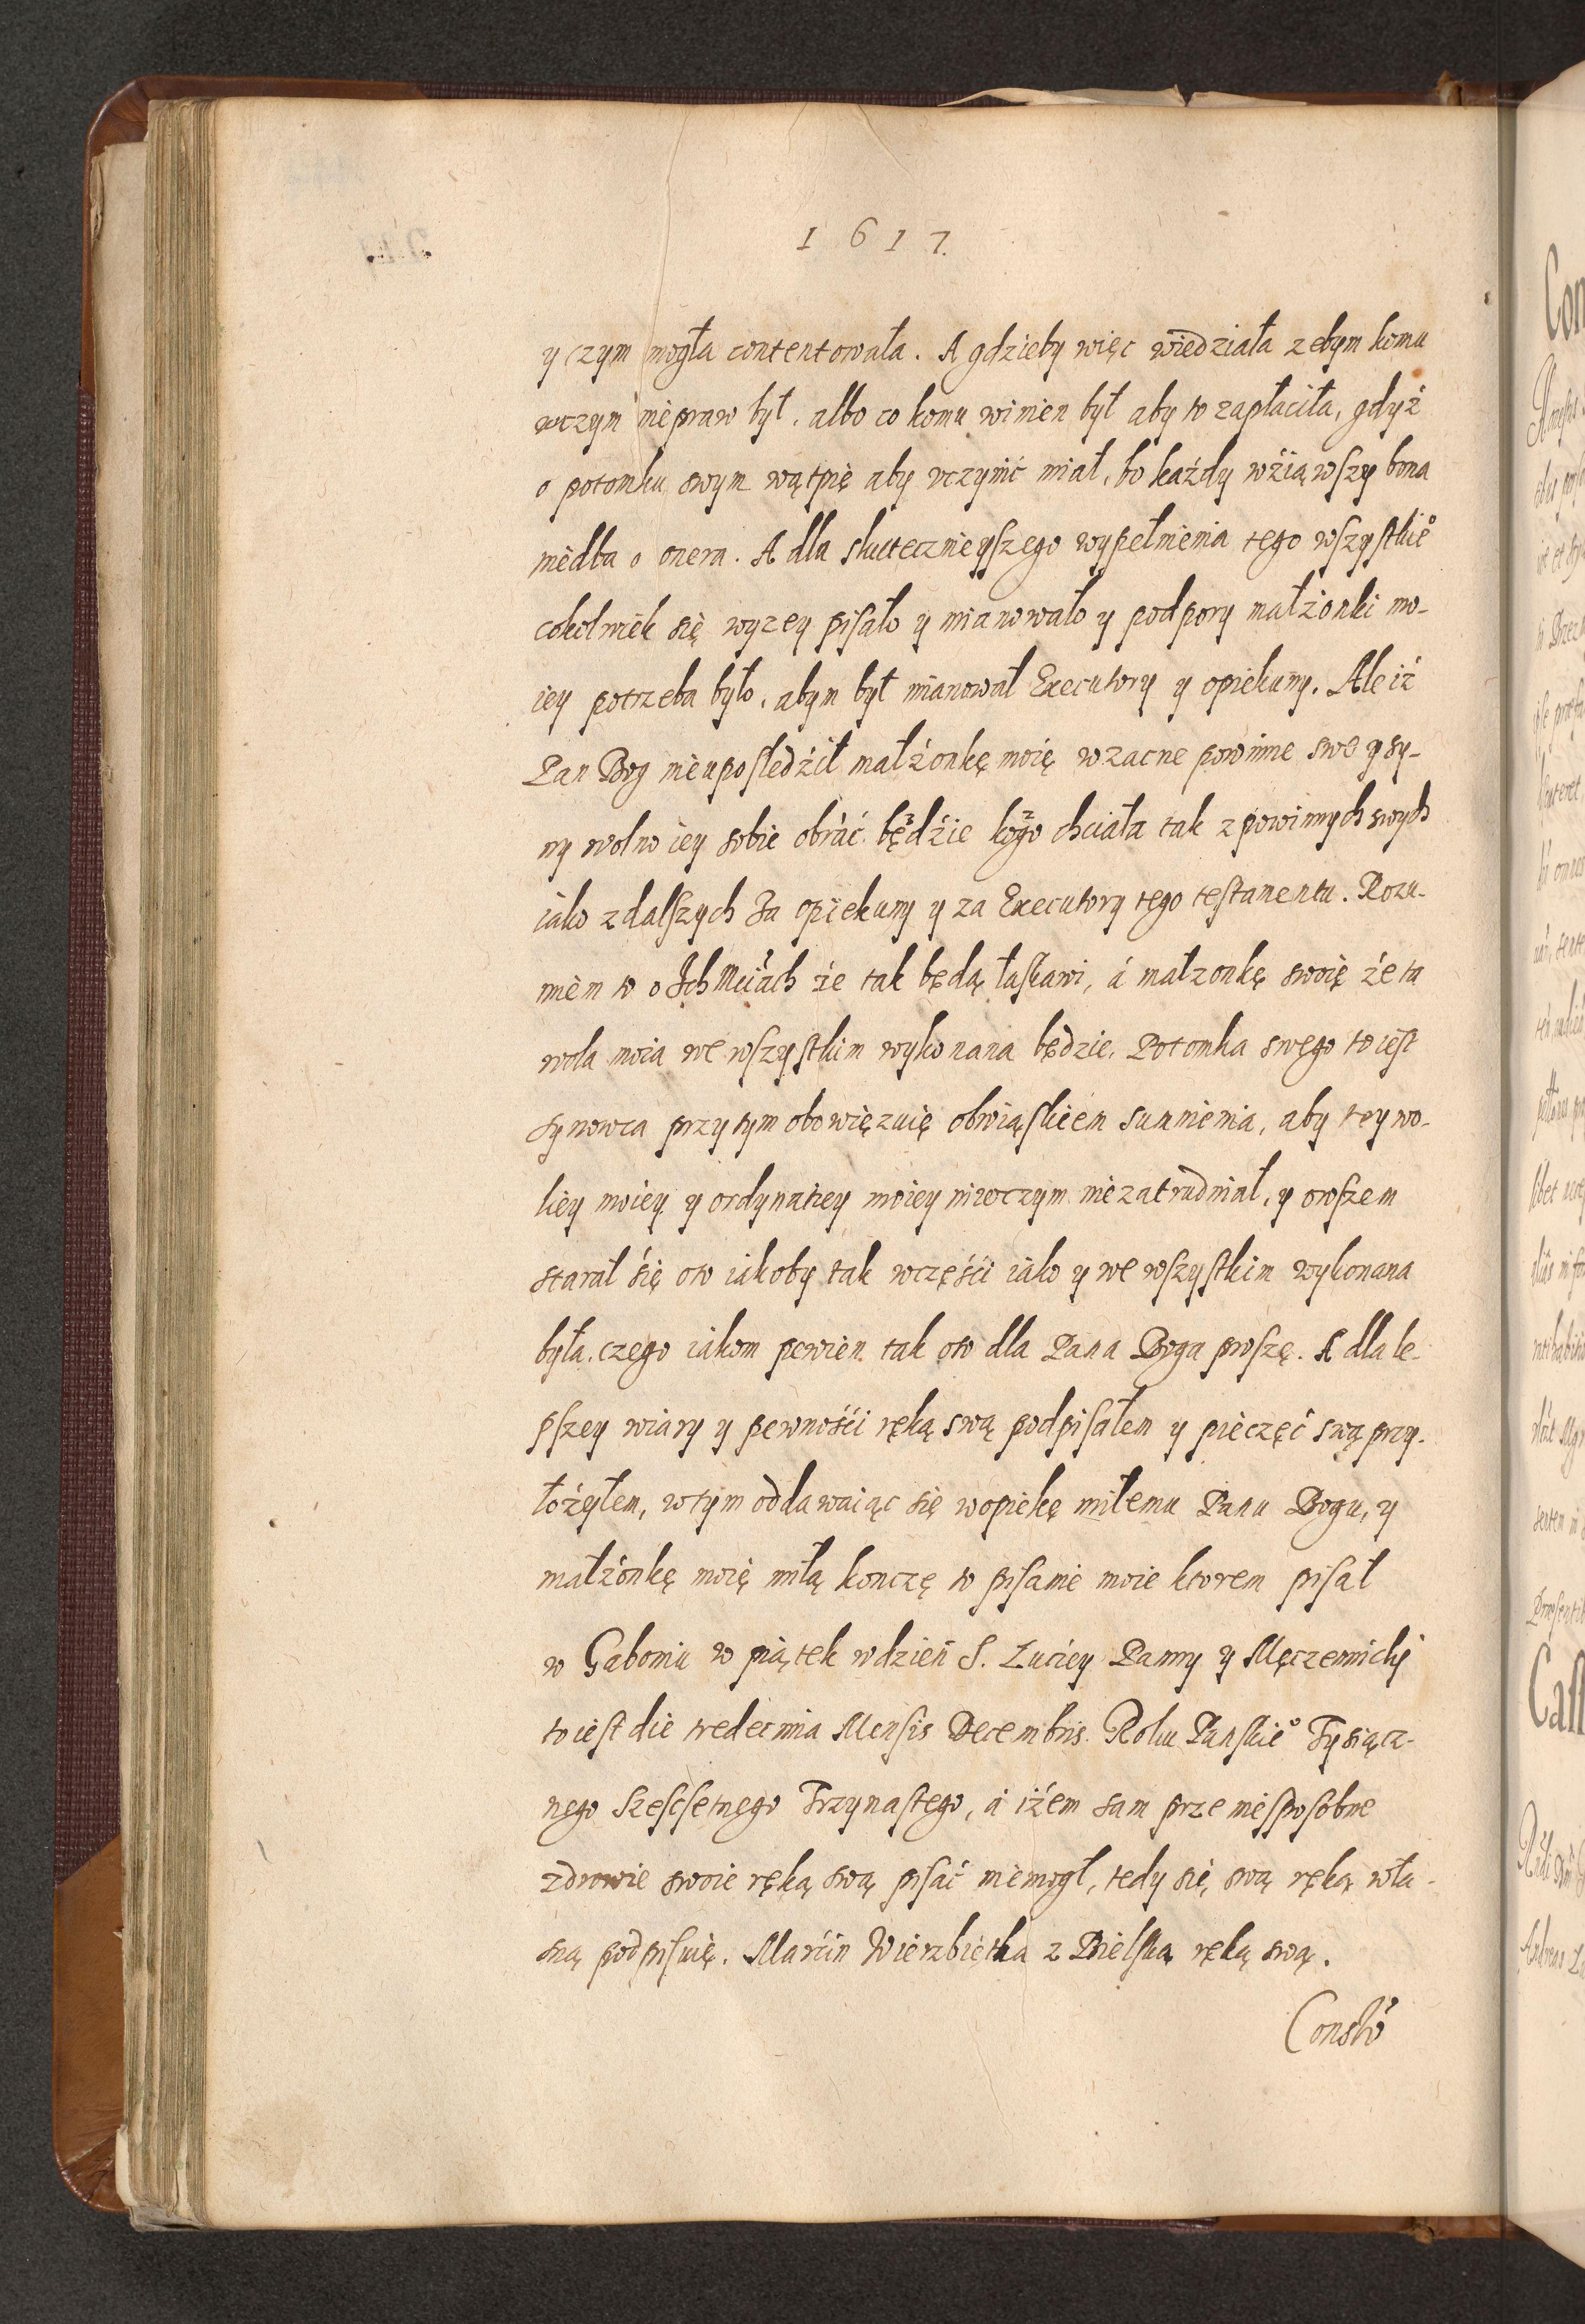 1617.
y czym mogła contentowała. A gdzieby więc wiedziała zebym komu
wczym niepraw był, albo co komu winien był aby to zapłaciła, gdyż
o potomku swym wątpię aby vczynić miał, bo każdy wźiąwszy bona
niedba o onera. A dla skutecznieyszego wypełnienia tego wszystkieº
cokolwiek się wyzey pisało y mianowało y podpory małżonki mo-
iey potrzeba było, abym był mianował Executory y opiekuny. Ale iż
Pan Bog nieupośledźił małżonkę moię wzacne powinne swe y sy-
ny wolno iey sobie obrać będźie kogo chciała tak z powinnych swych
iako z dalszych za opiekuny y za Executory tego testamentu. Rozu-
miem to o Ich Mciach że tak będą łaskawi, á małzonkę swoię że ta
wola moia we wszystkim wykonana będzie. Potomka swego to iest
synowca przytym obowięzuię obwiąskiem sumnienia, aby tey wo-
liey moiey y ordynatiey moiey niwczym niezatrudniał, y owszem
starał się oto iakoby tak wczęśći iako y we wszystkim wykonana
była. czego iakom pewien tak oto dla Pana Boga proszę. A dla le-
pszey wiary y pewnośći ręką swą podpisałem y pieczęć swą przy-
łożyłem, wtym oddawaiąc się wopiekę miłemu Panu Bogu, y
małżonkę moię miłą konczę to pisanie moie ktorem pisał
w Gaboniu w piątek wdzień S. Luciey Panny y Męczennicki
to iest die tredecima Mensis Decembris. Roku Panskieº Tysiącz-
nego Szescsetnego Trzynastego, á iżem sam prze niesposobne
zdrowie swoie ręką swą pisać niemogł, tedy się swą ręką wła-
sną podpisuię. Marćin Wierzbiętka z Bielska ręką swą.